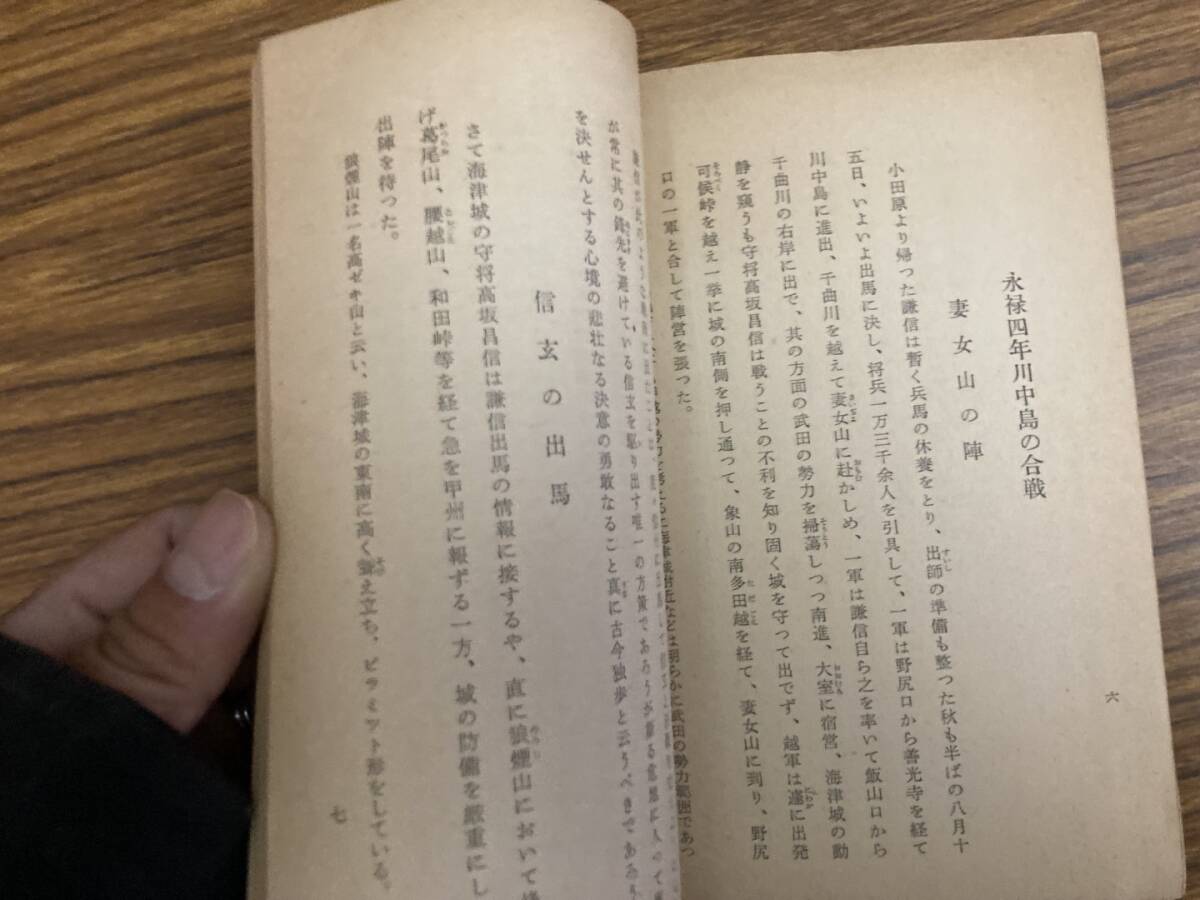 永禄四年川中島の合戦
妻女山の陣
小田原より帰つた謙信は暫く兵馬の休養をとり、出師の準備も整つた秋も半ばの八月十
五日、いよいよ出馬に決し、将兵一万三千余人を引具して、一軍は野尻口から善光寺を経て
川中島に進出、千曲川を越えて妻女山に赴かしめ、一軍は謙信自ら之を率いて飯山口から
千曲川の右岸に出で、其の方面の武田の勢力を掃蕩しつつ南進、大室に宿営、海津城の動
静を窺うも守将高坂昌信は戦うことの不利を知り固く城を守つて出でず、越軍は遽に出発
可候峠を越え一挙に城の南側を押し通つて、象山の南多田越を経て、妻女山に到り、野尻
口の一軍と合して陣営を張つた。
勢力を考えるに海津城附近などは明らかに武田の勢力範囲であつ
六
が常に其の鋒先を避けている信玄を駆り出す唯一の方策であろうが
を決せんとする心境の悲壮なる決意の勇敢なること真に古今独歩と云うべきであろう
信玄の出馬
さて海津城の守将高坂昌信は謙信出馬の情報に接するや、直に狼煙山において
げ葛尾山、腰越山、和田峠等を経て急を甲州に報ずる一方、城の防備を厳重にし
出陣を待つた。
狼煙山は一名高ゼキ山と云い、海津城の東南に高く聳え立ち、ピラミツト形をしている。
七